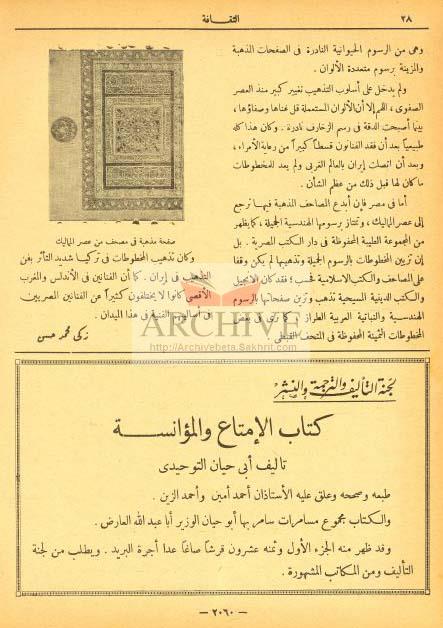 ٢٨
الثقافة
وهى من الرسوم الحيوانية النادرة فى الصفحات الذهبة
والمزينة برسوم متعددة الألوان .
ولم يدخل على أسلوب التذهيب تغيير كبير منذ العصر
الصفوى ، اللهم إلا أن الألوان المستعملة قل غناها وصفاؤها ،
بينما أصبحت الدقة فى رسم الزخارف نادرة . وكان هذا كله
طبيعياً بعد أن فقد الفنانون قسطاً كبيراً من رعاية الأمراء ،
وبعد أن اتصلت إيران بالعالم الغربى ولم يعد للمخطوطات
ما كان لها قبل ذلك من عظم الشأن .
أما فى مصر فإن أبدع المصاحف الذهبية فيها ترجع
إلى عصر المماليك ، وتمتاز برسومها الهندسية الجميلة ، كما يظهر
من المجموعة الطيبة المحفوظة فى دار الكتب المصرية . بل
إن تزيين المخطوطات بالرسوم الجميلة وتذهيبها لم يكن وقفا
على المصاحف والكتب الاسلامية فحسب ؛ فقد كان الانجيل
والكتب الدينية المسيحية تذهب وتزين صفحاتها بالرسوم
الهندسية والنباتية العربية الطراز كما نرى فى بعض
المخطوطات الثمينة المحفوظة فى المتحف القبطى .
صفحة مذهبة فى مصحف من عصر المماليك
وكان تذهيب المخطوطات فى تركيا شديد التأثر بفن
التذهيب فى إيران . كما أن الفنانين فى الأندلس والمغرب
الأقصى كانوا لا يختلفون كثيراً عن الفنانين المصريين
فى أساليبهم الفنية فى هذا الميدان .
زكى محمد حسن
ARCHIVE
http://Archivebeta.Sakhrit.com
لجنة التأليف والترجمة والنشر
كتاب الإمتاع والمؤانسة
تأليف أبى حيان التوحيدى
طبعه وصححه وعلق عليه الأستاذان أحمد أمين وأحمد الزين .
والكتاب مجموع مسامرات سامر بها أبو حيان الوزير أبا عبد الله العارض .
وقد ظهر منه الجزء الأول وثمنه عشرون قرشاً صاغاً عدا أجرة البريد . ويطلب من لجنة
التأليف ومن المكاتب المشهورة .
— ٢٠٦٠ —